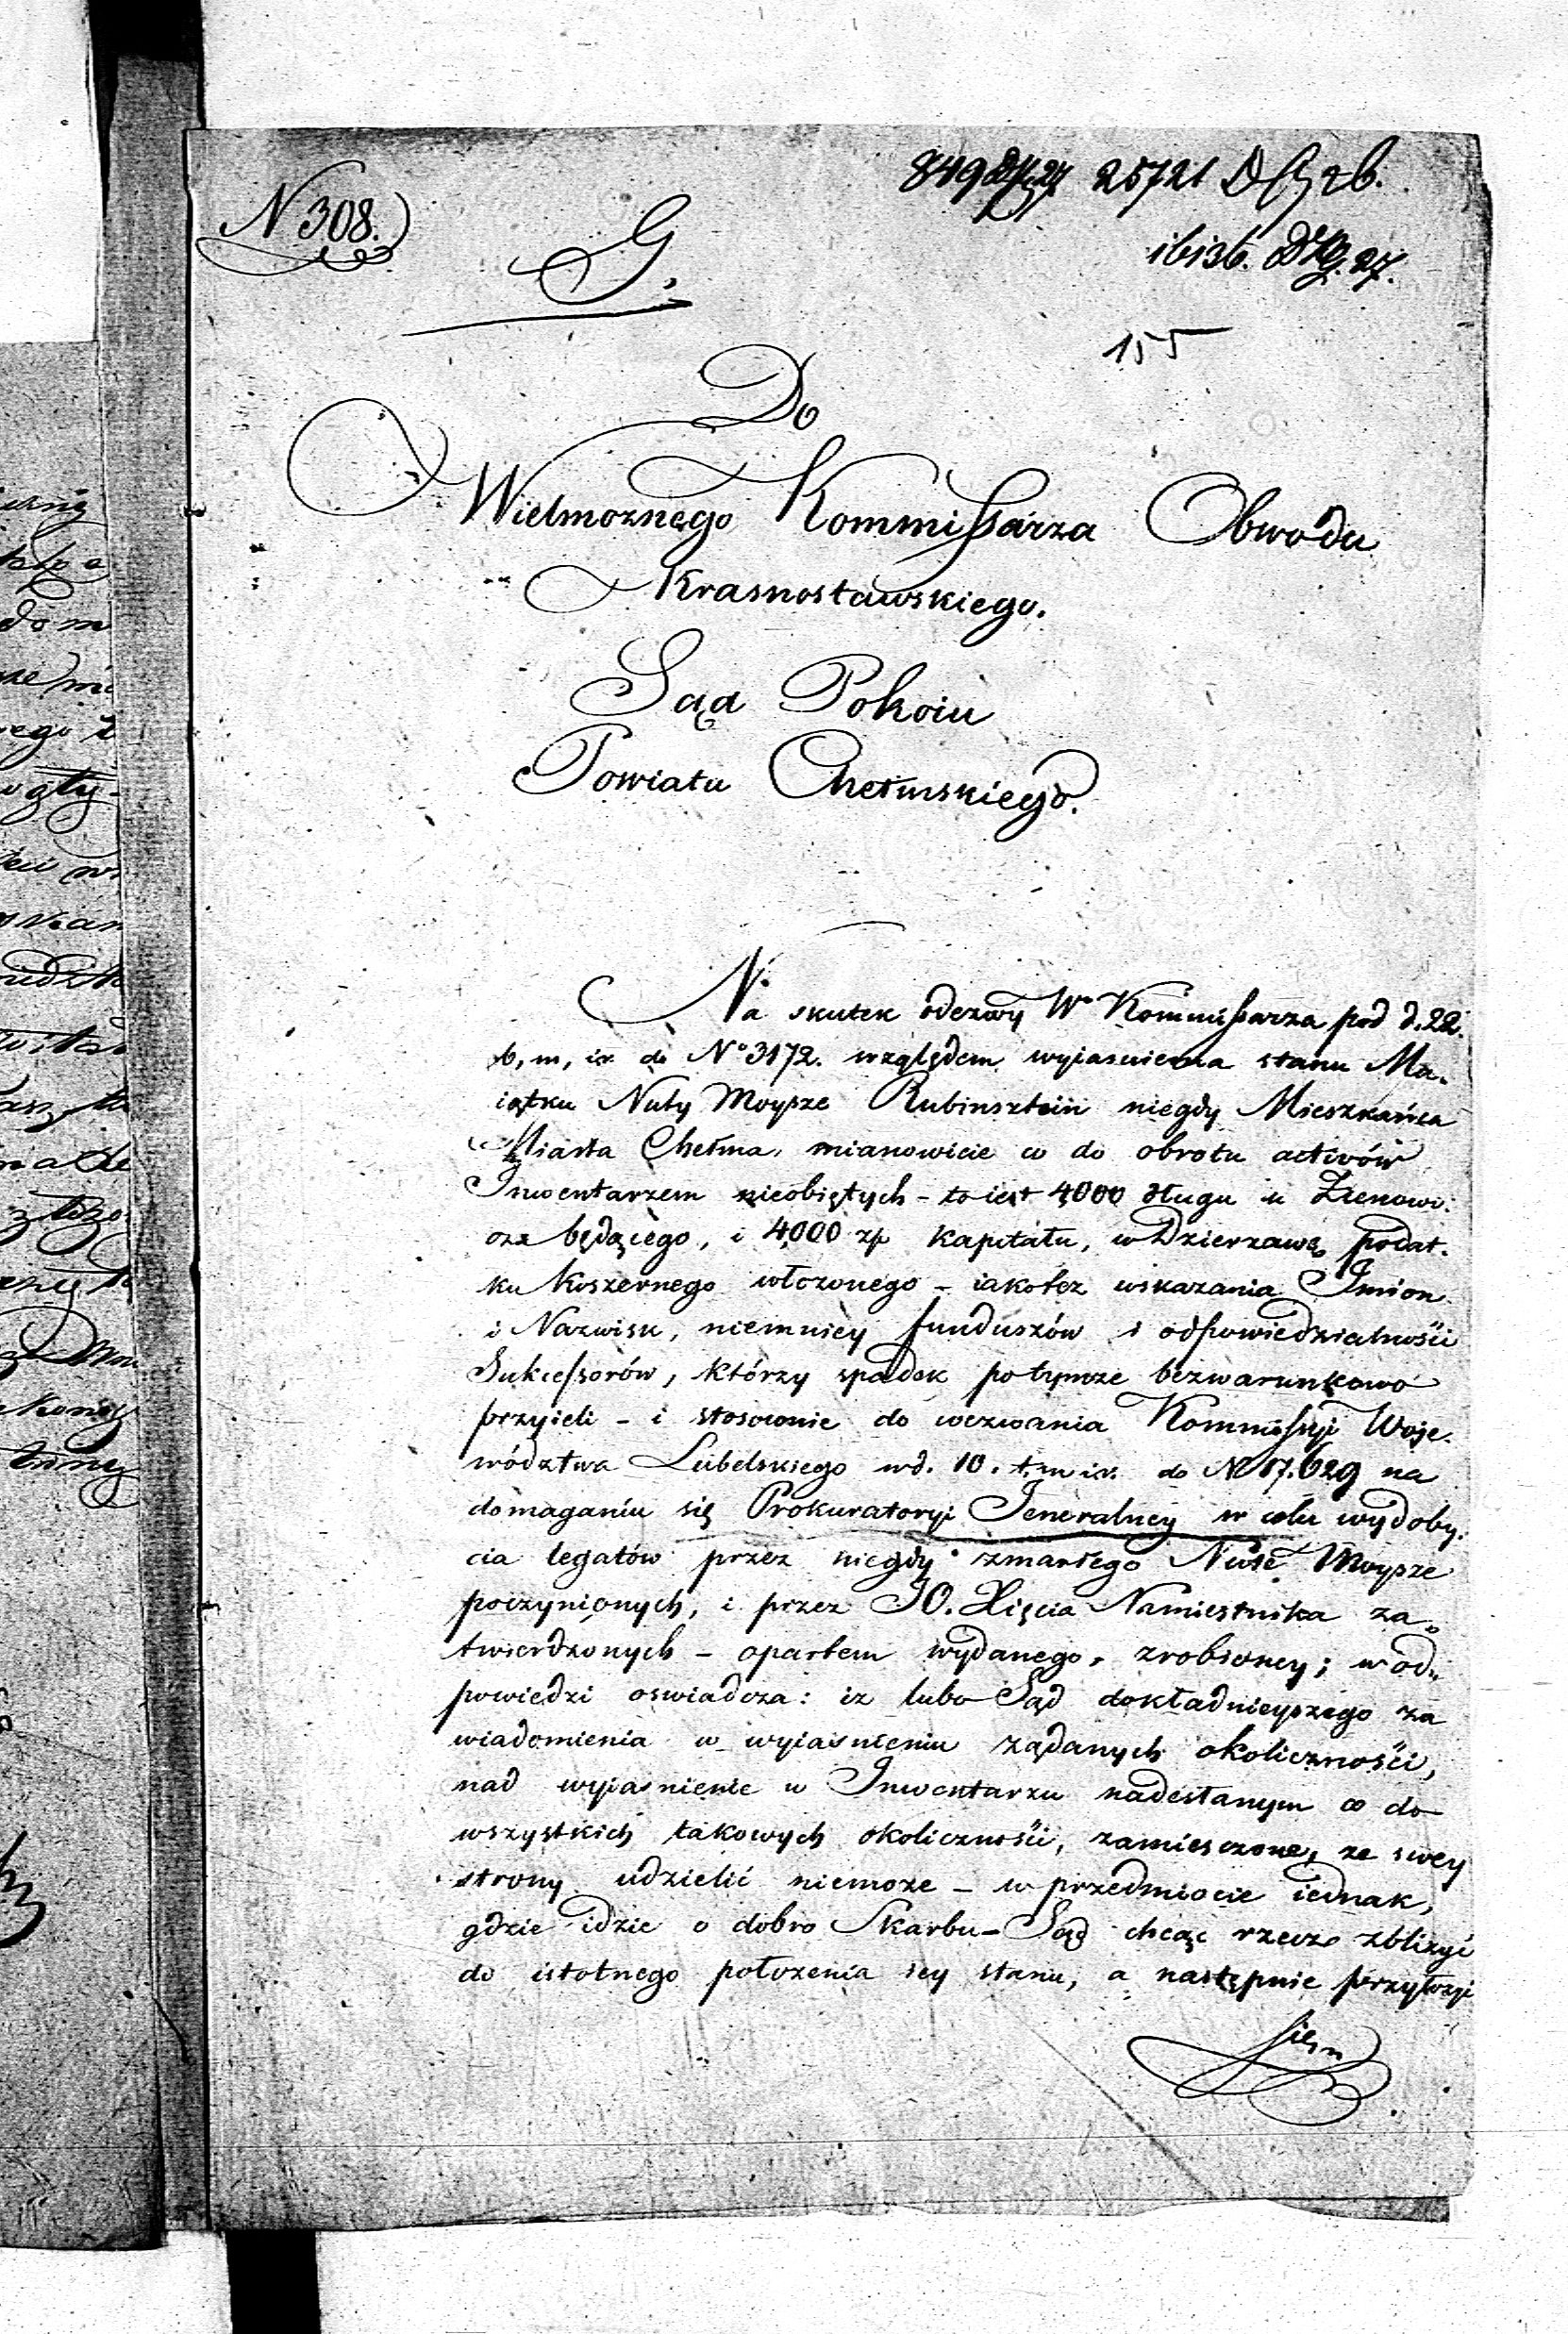 N 308.
G.
25721
16136. 27.
155
Do
Wielmoznego Kommissarza Obwodu
Krasnostawskiego.
Sąd Pokoiu
Powiatu Chełmskiego.
Na skutek odezwy W° Kommissarza pod d. 22.
b, m, i r. do N° 3172. względem wyiasnienia stanu Ma-
iątku Nuty Moysze Rubinsztein niegdy Mieszkańca
Miasta Chełma, mianowicie co do obrotu activów
Inwentarzem nieobiętych – to iest 4000 długu u Zienowi-
cza będącego, i 4000 zł kapitału, w Dzierzawę podat-
ku Koszernego włozonego – iakotez wskazania Imion
i Nazwisk, niemniey funduszów i odpowiedzialności
Sukcessorów, którzy spadek potymze bezwarunkowo
przyieli – i stosownie do wezwania Kommissyi Woje-
wództwa Lubelskiego z d. 10. t. m i r. do N 17.629 na
domaganiu się Prokuratoryi Jeneralney w celu wydoby-
cia legatów przez niegdy zmarłego Moysze
poczynionych, i przez JO. Xięcia Namiestnika za-
twierdzonych – opartem wydanego, zrobioney; w od-
powiedzi oswiadcza: iz lubo Sąd dokładnieyszego za
wiadomienia w wyiasnieniu ządanych okoliczności,
nad wyiasnienie w Inwentarzu nadesłanym co do
wszystkich takowych okoliczności, zamiesczone, ze swey
strony udzielić niemoze – w przedmiocie iednak,
gdzie idzie o dobro Skarbu – Sąd chcąc rzecz zblizyć
do istotnego położenia iey stanu, a następnie